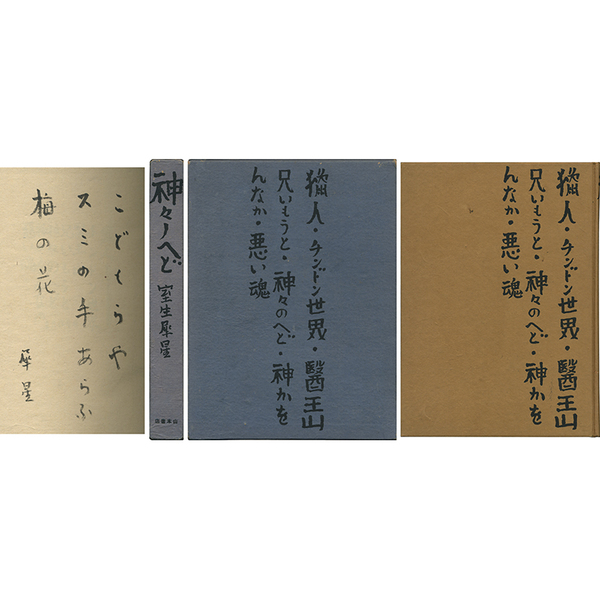 こどもらや
スミの手あらふ
梅の花
犀星
神々ノへど
室生犀星
山本書店
獵人・チンドン世界・醫王山
兄いもうと・神々のへど・神かを
んなか・悪い魂
獵人・チンドン世界・醫王山
兄いもうと・神々のへど・神かを
んなか・悪い魂